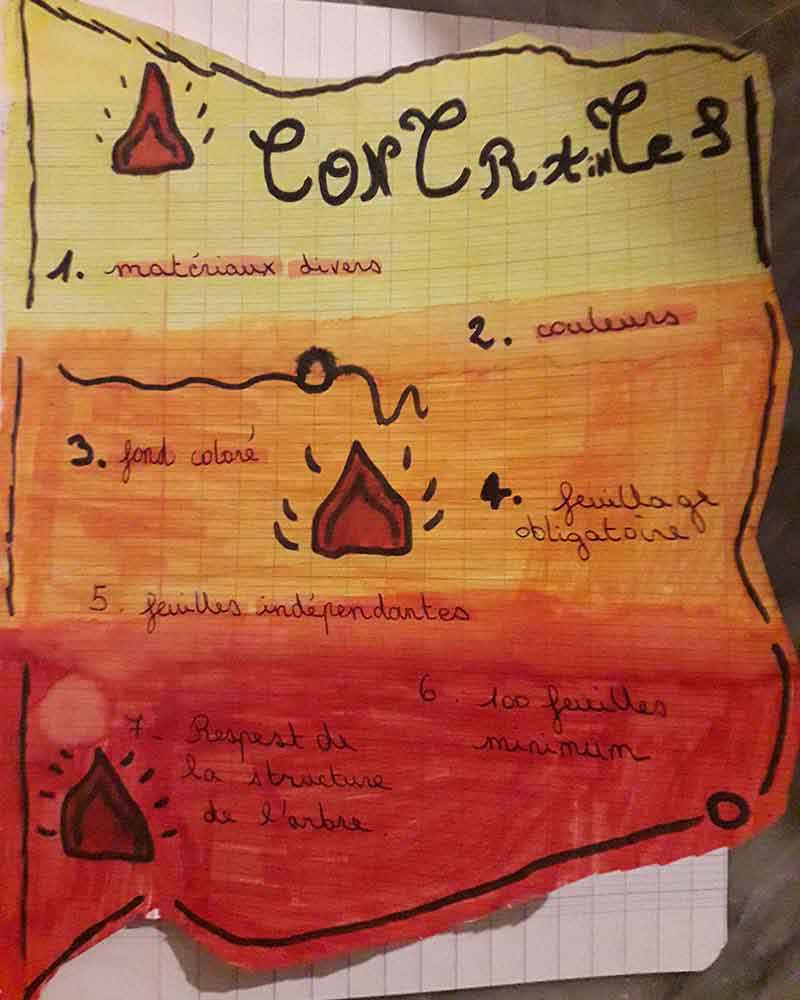 CONTRAiNTeS
1. matériaux divers
2. couleurs
3. fond coloré
4. feuillage
obligatoire
5. feuilles indépendantes
6. 100 feuilles
minimum
7- Respest de
la structure
de l'arbre.